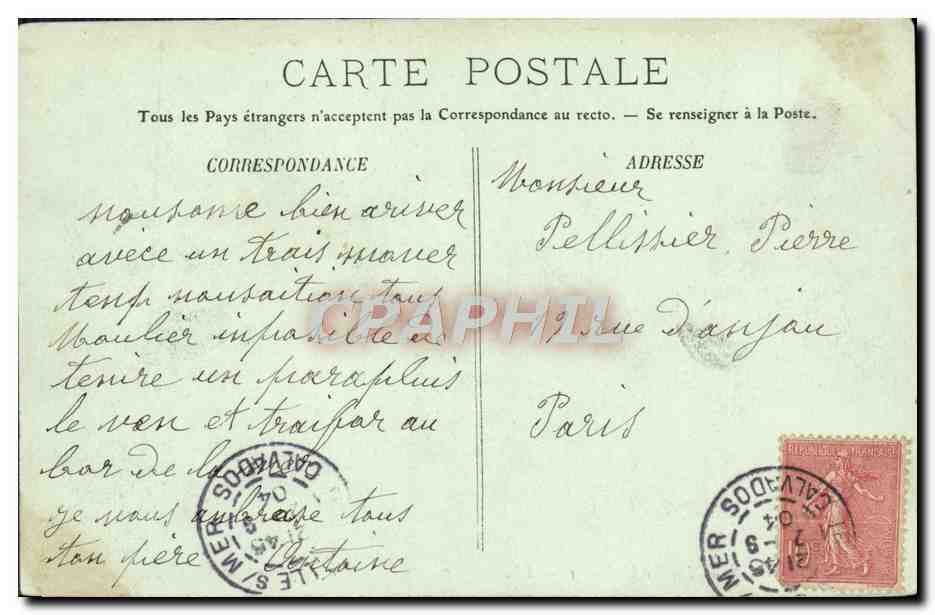 CARTE POSTALE
Tous les Pays étrangers n'acceptent pas la Correspondance au recto. — Se renseigner à la Poste.
CORRESPONDANCE
nousome bien ariver
avéce un trais mover
temp nousaition tous
Moulier inposible de
tenire un paraplui
le ven et traifor au
bor de la mer
je vous anbrase tous
ton père Antoine
ADRESSE
Monsieur
Pellissier Pierre
19 rue d'anjou
Paris
CRAPHIL
S/MER CALVADOS
04
REPUBLIQUE FRANÇAISE
S/MER CALVADOS
21 45
7 - 9
04